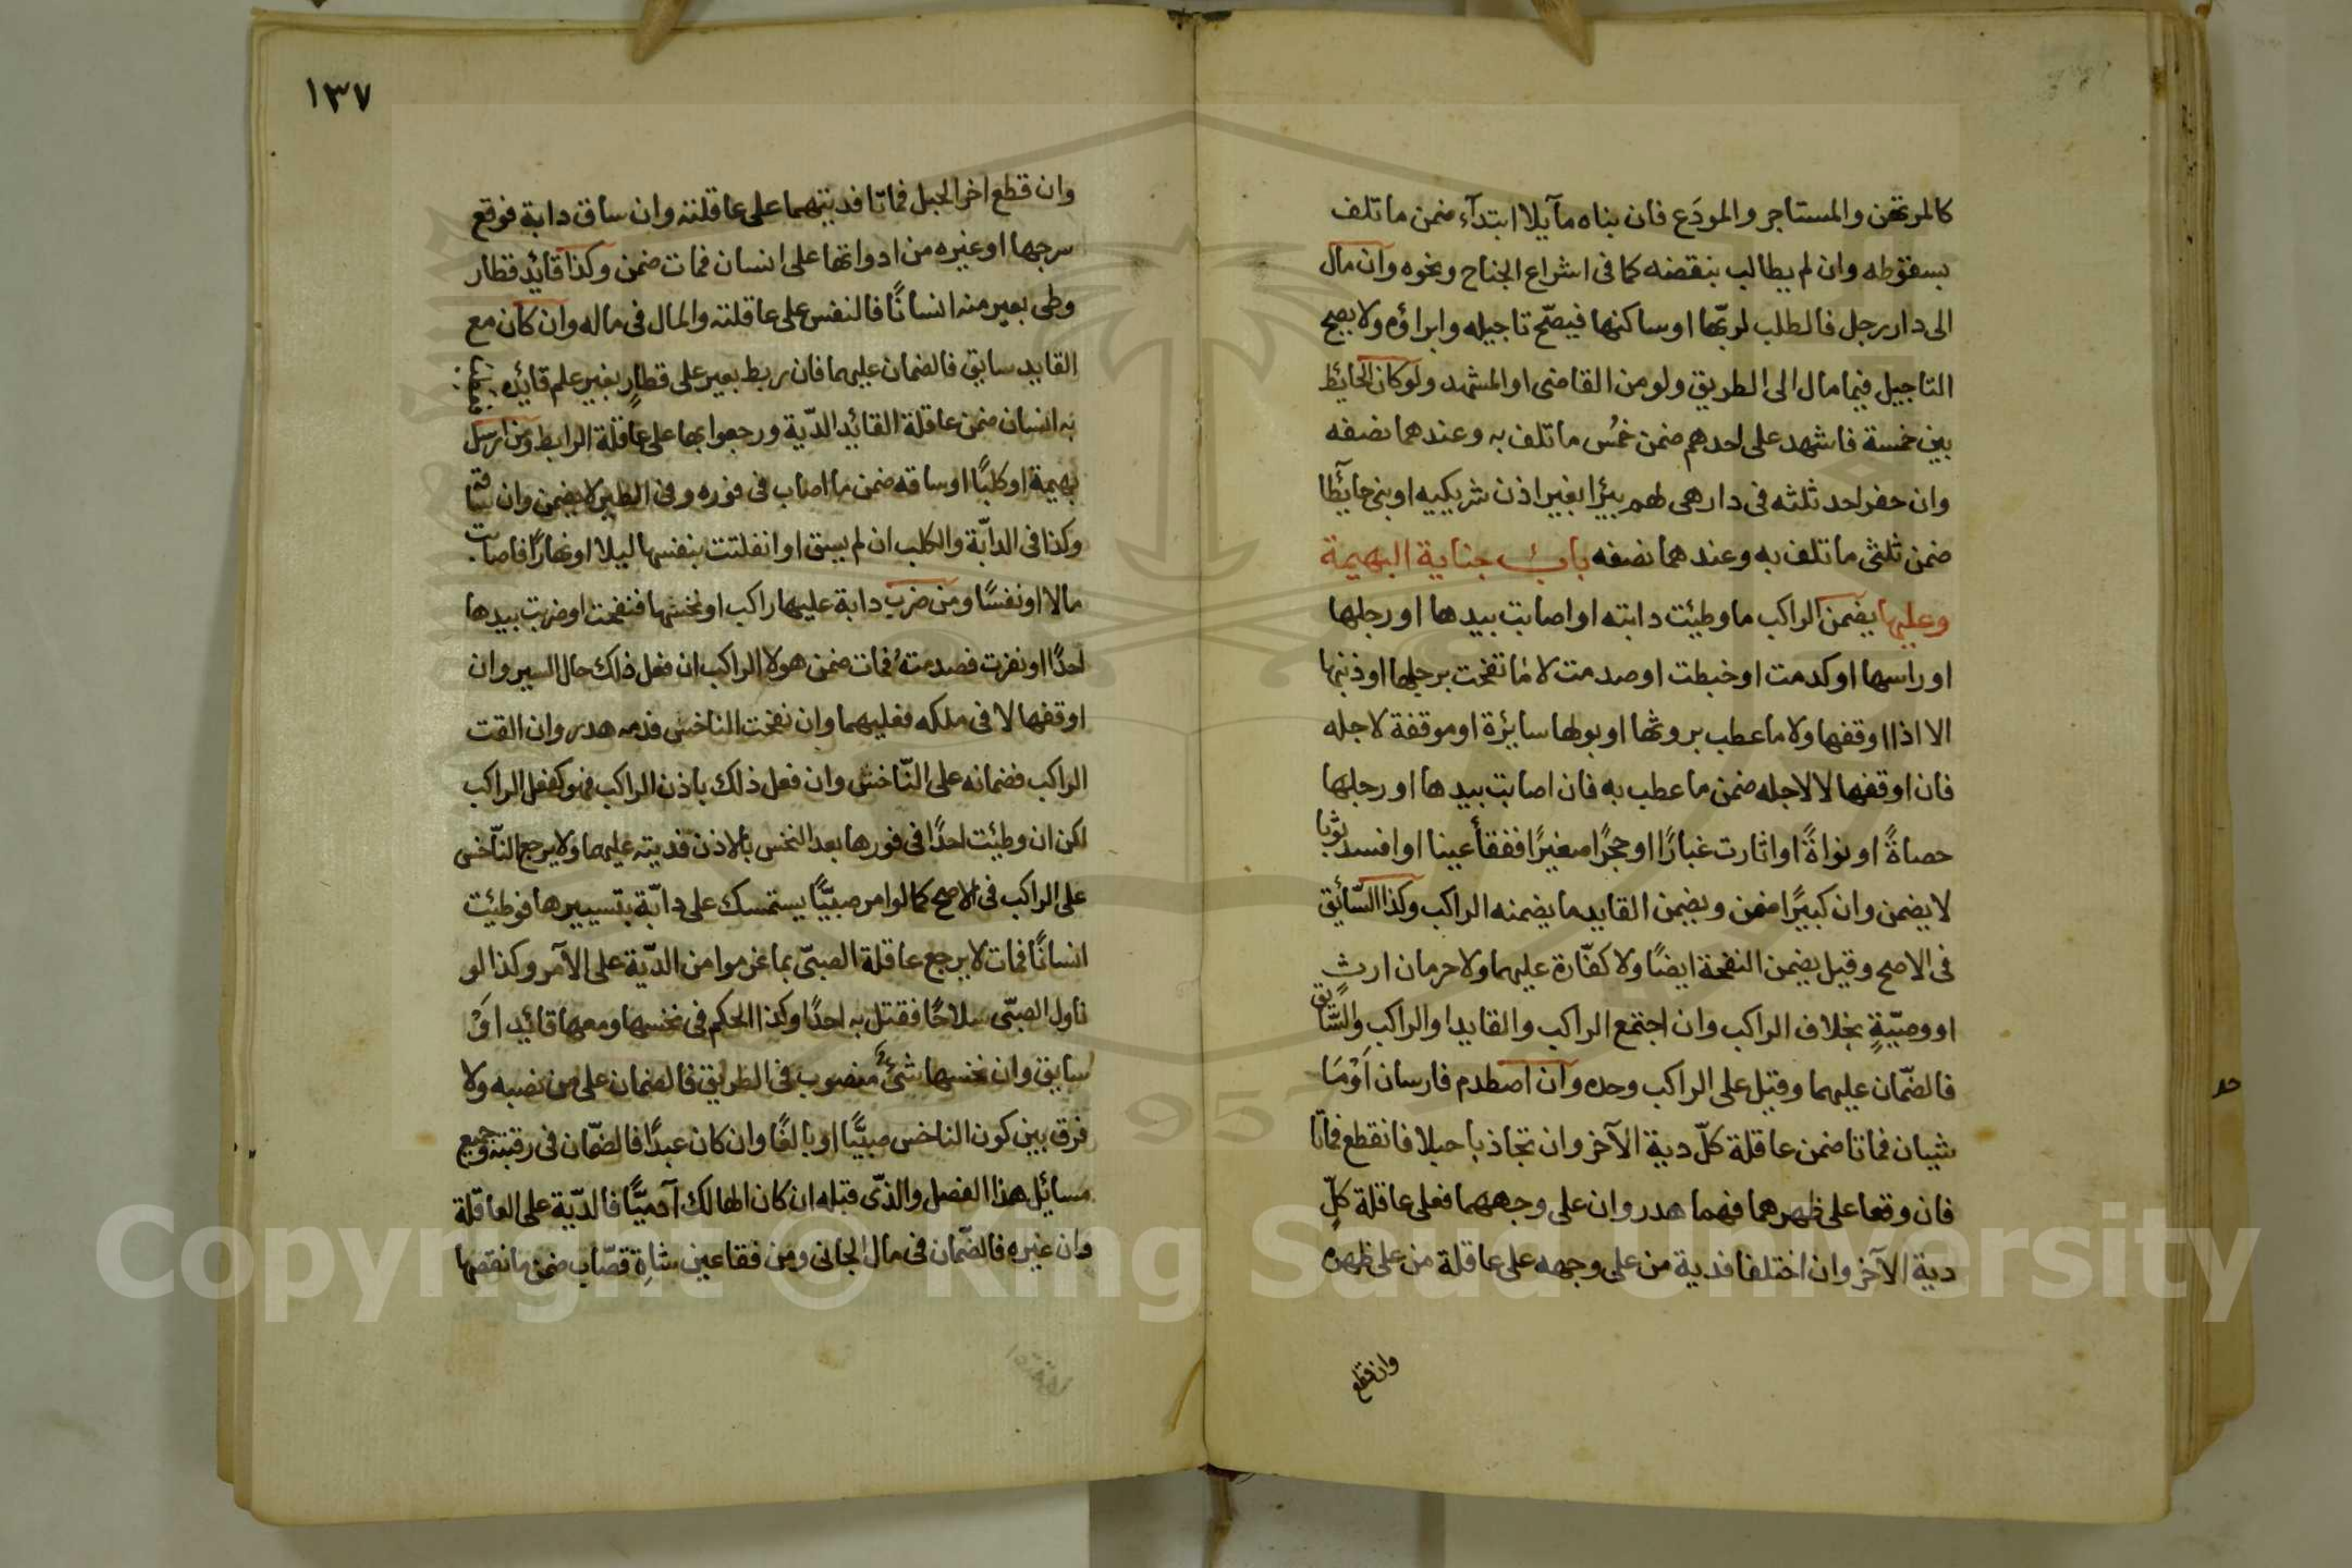 كالمرتهن والمستاجر والمودَع فان بناه مآيلا ابتدآء ضمن ما تلف
بسقوطه وان لم يطالب بنقضه كما فى اشراع الجناح ونحوه وان مال
الى دار رجل فالطلب لربّها او ساكنها فيصّح تاجيله وابراؤه ولا يصح
التاجيل فيما مال الى الطريق ولو من القاضى او المشهد ولو كان الحائط
بين خمسة فاشهد على احدهم ضمن خمُس ما تلف به وعندهما نصفه
وان حفر احد ثلثه فى دار هى لهم بئرا بغير اذن شريكيه او بنى حائطا
ضمن ثلثى ما تلف به وعندهما نصفه باب جناية البهيمة
وعليها يضمن الراكب ما وطئت دابته او اصابت بيدها او رجلها
او راسها او كدمت او خبطت او صدمت لا ما نفحت برجلها او ذنبها
الا اذا اوقفها ولا ما عطب بروثها او بولها سايرة او موقفة لاجله
فان اوقفها لا لاجله ضمن ما عطب به فان اصابت بيدها او رجلها
حصاةً او نواةً او اثارت غبارًا او حجرًا صغيرًا ففقأ عينا او افسد ثوبا
لا يضمن وان كبيرًا ضمن ويضمن القايد ما يضمنه الراكب وكذا السّائق
فى الاصح وقيل يضمن النفحة ايضًا ولا كفّارة عليهما ولا حرمان ارثٍ
او وصيّةٍ بخلاف الراكب وان اجتمع الراكب والقايد او الراكب والسّايق
فالضّمان عليهما وقيل على الراكب وحده وان اصطدم فارسان اَوْمَا
شيان فماتا ضمن عاقلة كلّ دية الآخر وان تجاذبا حبلا فانقطع فماتا
فان وقعا على ظهرهما فهما هدر وان على وجههما فعلى عاقلة كلٍّ
دية الآخر وان اختلفا فدية من على وجهه على عاقلة من على ظهره
وان قطع
١٣٧
وان قطع اخر الحبل فماتا فديتهما على عاقلته وان ساق دابة فوقع
سرجها او غيره من ادواتها على انسان فمات ضمن وكذا قايد قطار
وطى بعير منه انسانًا فالنفس على عاقلته والمال فى ماله وان كان مع
القايد سايق فالضمان عليهما فان ربط بعير على قطارٍ بغير علم قائده
به انسان ضمن عاقلة القائد الدّية ورجعوا بها على عاقلة الرابط ومن ارسل
بهيمة او كلبًا او ساقه ضمن ما اصاب فى فوره وفى الطير لا يضمن وان ساقه
وكذا فى الدابّة والكلب ان لم يسق او انفلتت بنفسها ليلا او نهارًا فاصابت
مالا او نفسًا ومن ضرب دابة عليها راكب او نخسها فنفحت او ضربت بيدها
احدًا او نفرت فصدمته فمات ضمن هو لا الراكب ان فعل ذلك حال السير وان
اوقفها لا فى ملكه فعليهما وان نفحت الناخس فدمه هدر وان القت
الراكب فضمانه على النّاخس وان فعل ذلك باذن الراكب فهو كفعل الراكب
لكن ان وطئت احدًا فى فورها بعد النخس بالاذن فديته عليهما ولا يرجع النّاخس
على الراكب فى الاصح كما لو امر صبيًّا يستمسك على دابّة بتسييرها فوطئت
انسانًا فمات لا يرجع عاقلة الصبىّ بما غرموا من الدّية على الآمر وكذا لو
ناول الصبّى سلاحًا فقتل به احدًا وكذا الحكم فى نخسها ومعها قائد اَوْ
سايق وان نخسها شئٌ منصوب فى الطريق فالضمان على من نصبه ولا
فرق بين كون الناخس صبيًّا او بالغًا وان كان عبدًا فالضمّان فى رقبته وجميع
مسائل هذا الفصل والذّى قبله ان كان الهالك آدميًّا فالدّية على العاقلة
وان غيره فالضّمان فى مال الجانى ومن فقا عين شاةِ قصّاب ضمن ما نقصها
Copyright © King Saud University